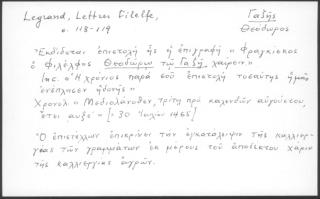 Legrand, Lettres Filelfe,
σ. 118-119
Γαζῆς
Θεόδωρος
"Ἐκδίδεται ἐπιστολὴ ἧς ἡ ἐπιγραφή "Φραγκίσκος
ὁ Φιλέλφος Θεοδώρῳ τῷ Γαζῇ, χαίρειν."
Inc. σ' Ἡ χρόνιος παρὰ σοῦ ἐπιστολὴ τοσαύτης ἡμᾶς
ἐνέπλησεν ἡδονῆς"
Χρονολ. "Μεδιολάνοθεν, τρίτῃ πρὸ καλενδῶν αὐγούστου,
ἔτει αυξε´" [= 30 Ἰουλίου 1465]
"Ὁ ἐπιστέλλων ἐπικρίνει τὴν ἐγκατάλειψιν τῆς καλλιερ-
γείας τῶν γραμμάτων ἐκ μέρους τοῦ ἀποδέκτου χάριν
τῆς καλλιεργείας ἀγρῶν.